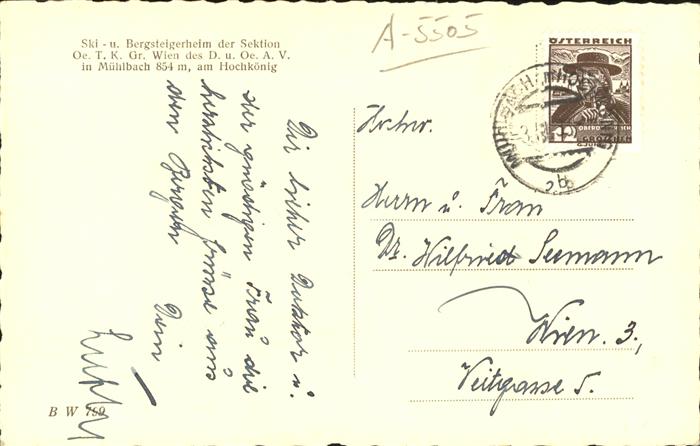 Ski - u. Bergsteigerheim der Sektion
Oe. T. K. Gr. Wien des D. u. Oe. A. V.
in Mühlbach 854 m, am Hochkönig
A-5505
ÖSTERREICH
Dir lieber Doktor u.
der gnädigen Frau die
herzlichsten Grüsse aus
den Bergen
Dein
Hochw.
Herrn u. Frau
Dr. Wilfried Seemann
Wien. 3,
Veitgasse 5.
B W 769